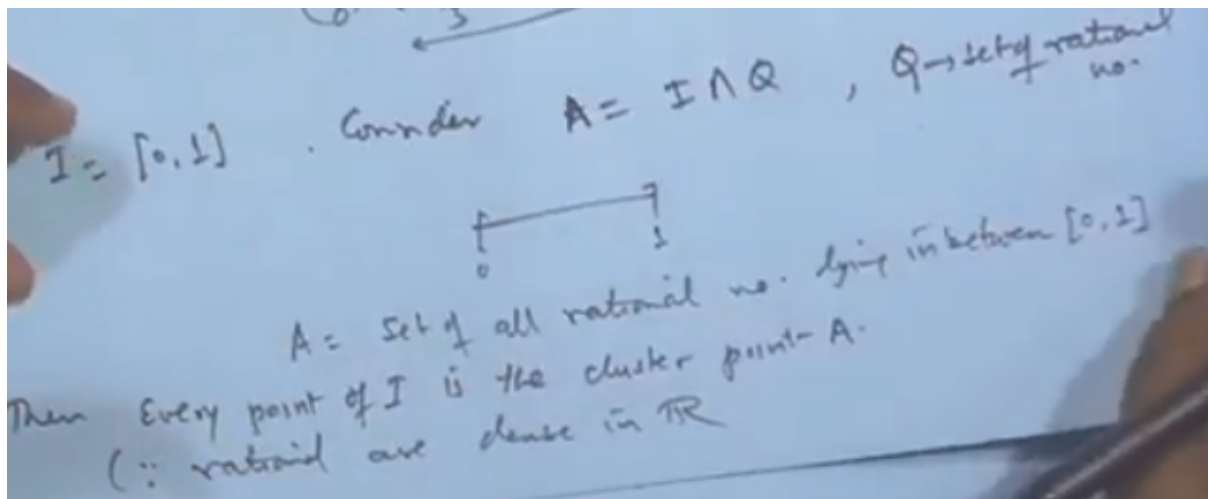 I = [0,1] . Consider A = I ∩ Q , Q → set of rational no.
0 1
A = Set of all rational no. lying in between [0,1]
Then Every point of I is the cluster point A.
(∵ rational are dense in ℝ